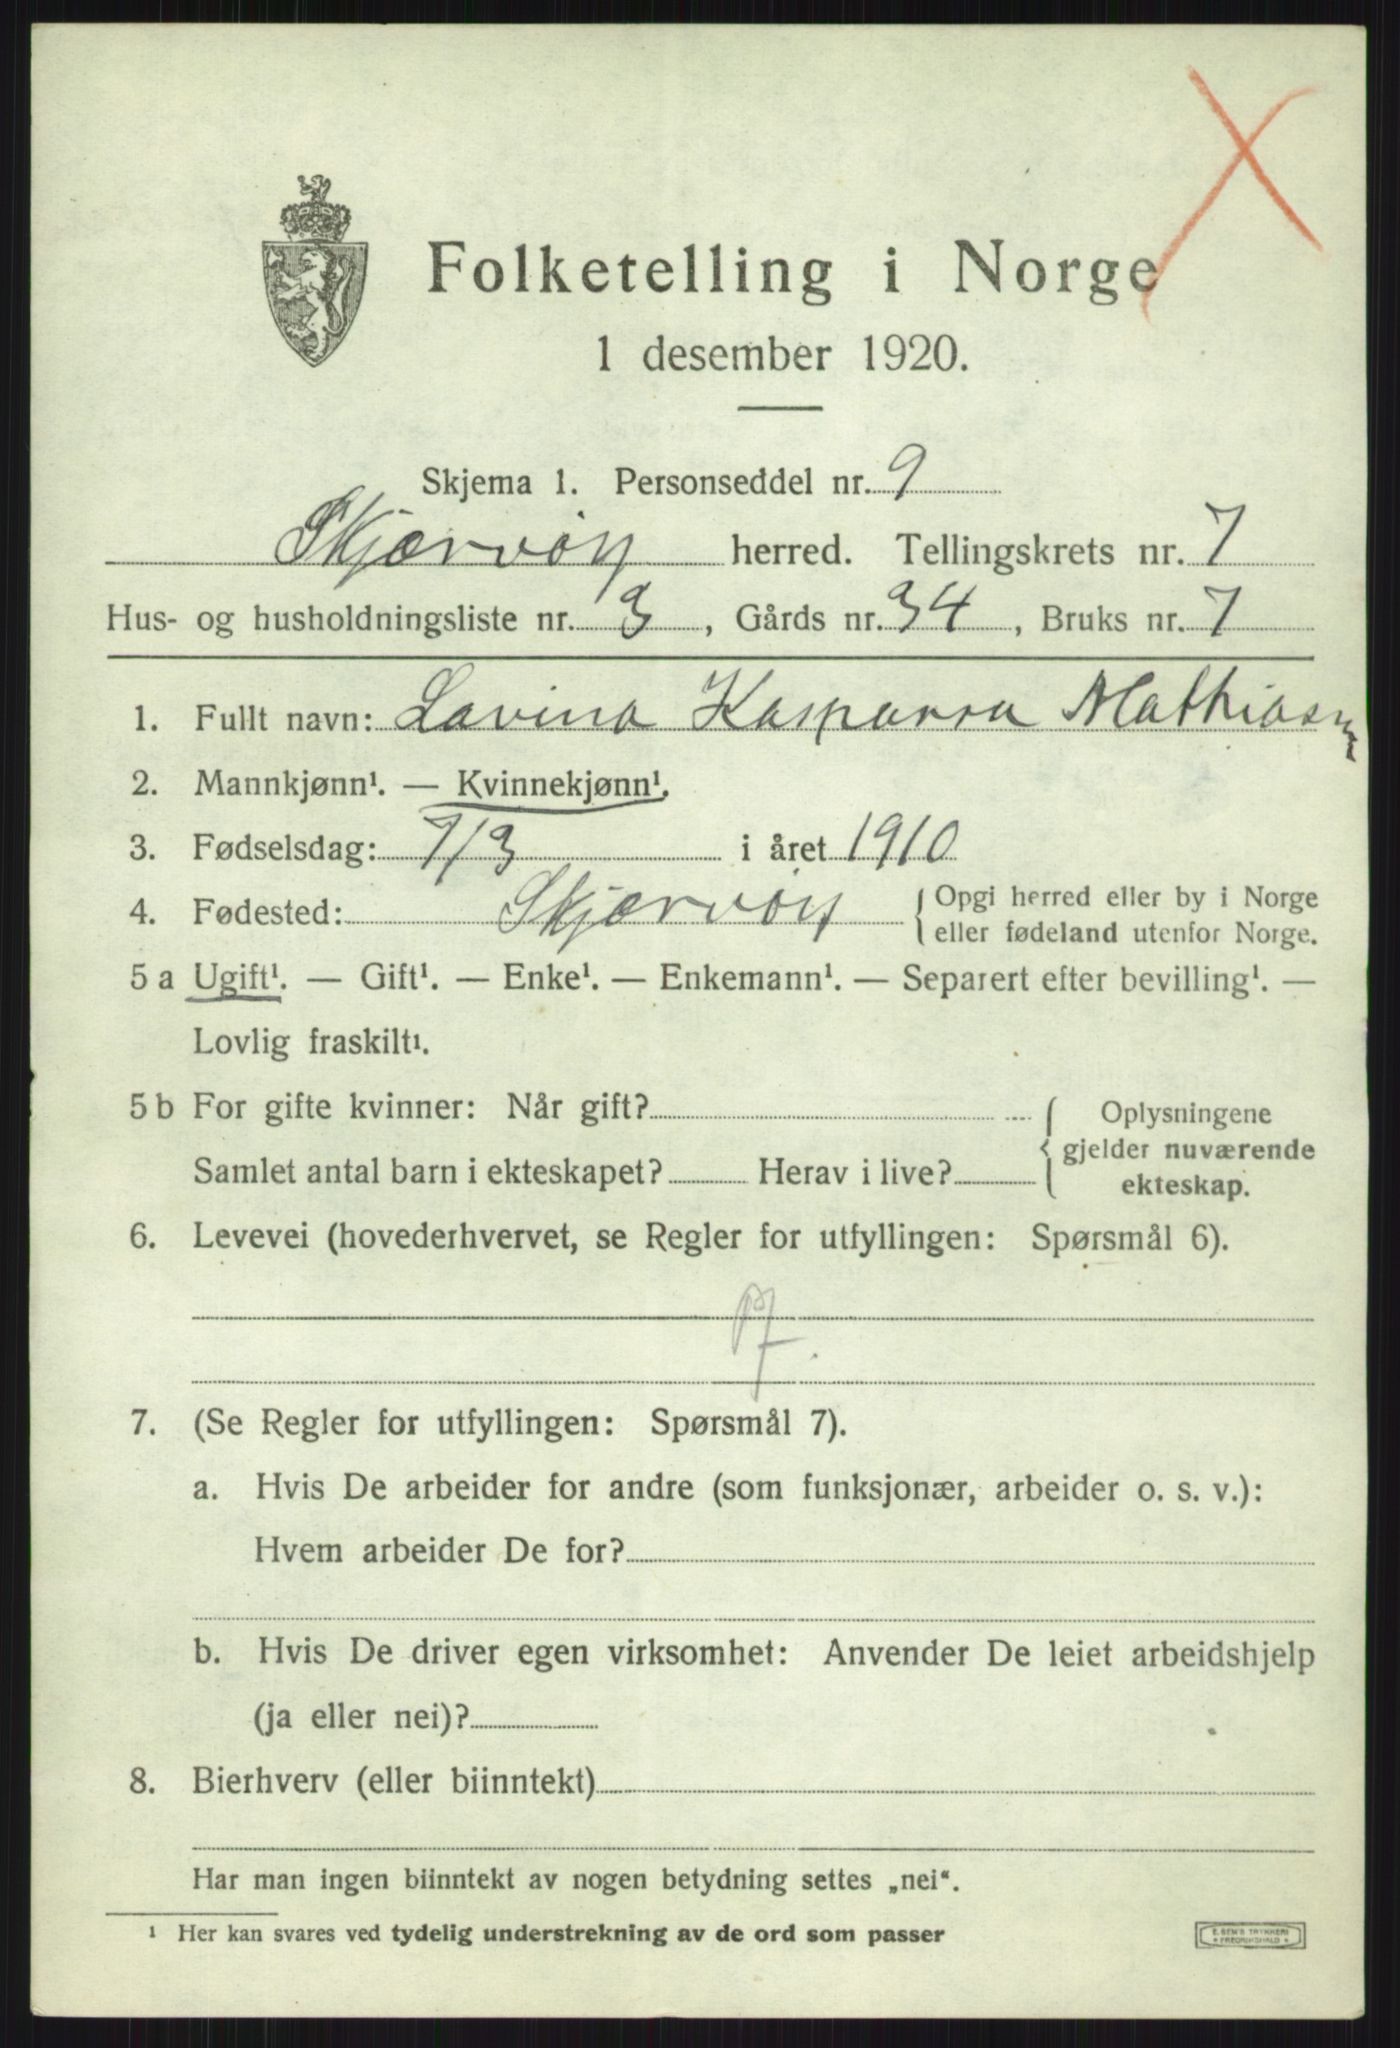 Folketelling i Norge
1 desember 1920.
Skjema 1. Personseddel nr. 9
Skjærvöy herred. Tellingskrets nr. 7
Hus- og husholdningsliste nr. 3, Gårds nr. 34, Bruks nr. 7
1. Fullt navn: Lavina Kasparra Mathiasn
2. Mannkjønn¹. — Kvinnekjønn¹.
3. Fødselsdag: 7/3 i året 1910
4. Fødested: Skjærvöy {Opgi herred eller by i Norge
eller fødeland utenfor Norge.
5 a Ugift¹. — Gift¹. — Enke¹. — Enkemann¹. — Separert efter bevilling¹. —
Lovlig fraskilt¹.
5 b For gifte kvinner: Når gift? { Oplysningene
gjelder nuværende
Samlet antal barn i ekteskapet? Herav i live? ekteskap.
6. Levevei (hovederhvervet, se Regler for utfyllingen: Spørsmål 6).
7. (Se Regler for utfyllingen: Spørsmål 7).
a. Hvis De arbeider for andre (som funksjonær, arbeider o. s. v.):
Hvem arbeider De for?
b. Hvis De driver egen virksomhet: Anvender De leiet arbeidshjelp
(ja eller nei)?
8. Bierhverv (eller biinntekt)
Har man ingen biinntekt av nogen betydning settes „nei“.
¹ Her kan svares ved tydelig understrekning av de ord som passer
E. SEM'S TRYKKERI
FREDRIKSHALD